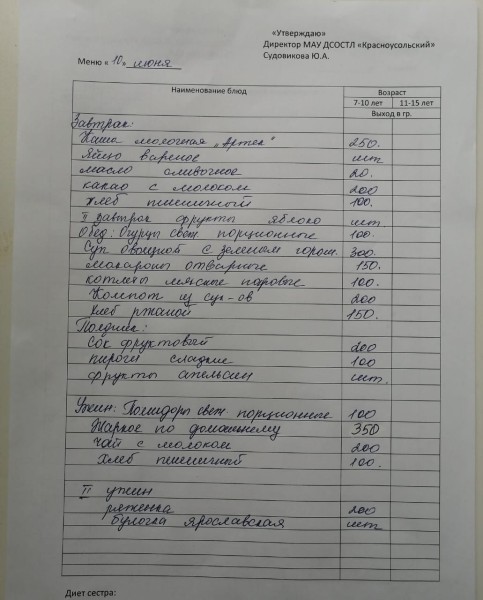 «Утверждаю»
Директор МАУ ДСОСТЛ «Красноусольский»
Судовикова Ю.А.
Меню « 10 » июня
Наименование блюд Возраст
7-10 лет 11-15 лет
Выход в гр.
Завтрак:
Каша молочная „Артек" 250.
Яйцо вареное шт
масло сливочное 20.
какао с молоком 200
хлеб пшеничный 100.
II завтрак фрукты яблоко шт.
Обед: Огурцы свеж. порционные 100.
Суп овощной с зеленым горош. 300.
макароны отварные 150.
котлеты мясные паровые 100.
Компот из сух-ов 200
хлеб ржаной 150.
Полдник:
Сок фруктовый 200
пироги сладкие 100
фрукты апельсин шт.
Ужин: Помидоры свеж. порционные 100
Жаркое по домашнему 350
Чай с молоком 200
Хлеб пшеничный 100.
II ужин
ряженка 200
булочка ярославская шт
Диет сестра: